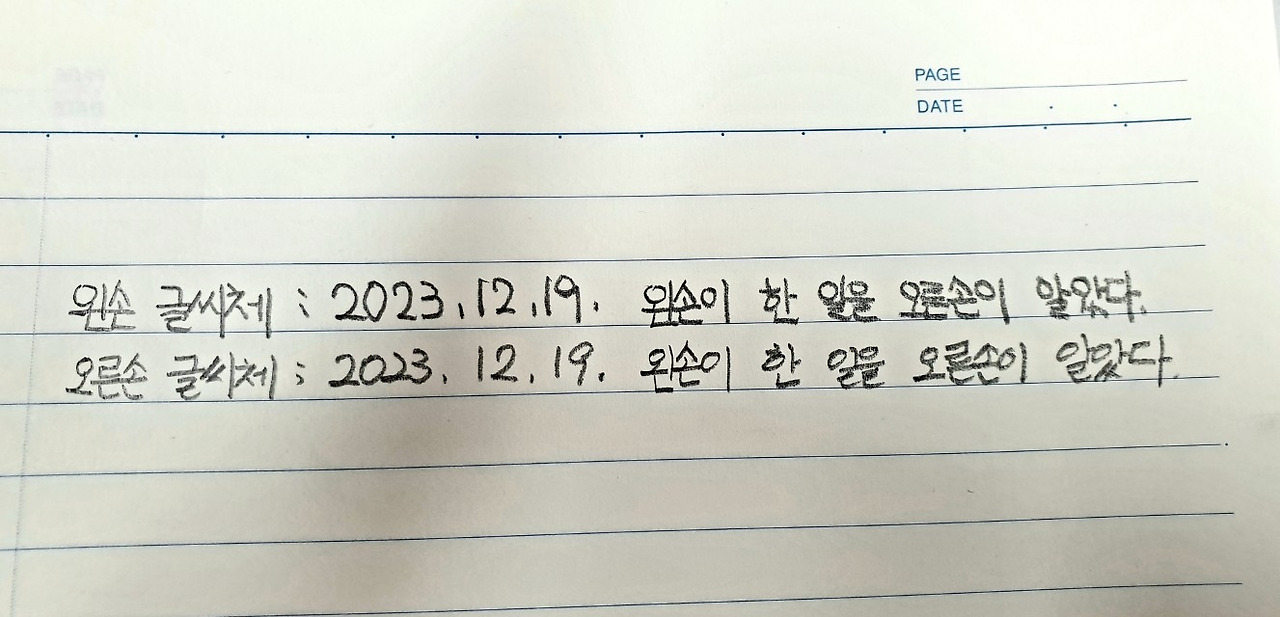 PAGE
DATE . .
왼손 글씨체 : 2023.12.19. 왼손이 한 일을 오른손이 알았다.
오른손 글씨체 : 2023. 12. 19. 왼손이 한 일을 오른손이 알았다.